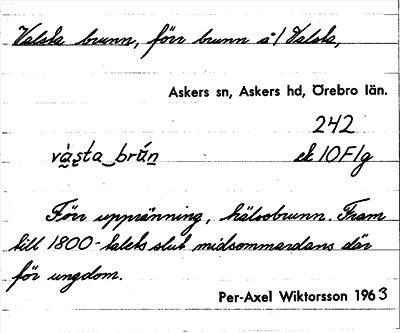 Valsta brunn, förr brunn å 1 Valsta,
Askers sn, Askers hd, Örebro län.
242
va̱sta_brún̲ ek 10F1g
Förr uppränning, hälsobrunn. Fram
till 1800-talets slut midsommardans där
för ungdom.
Per-Axel Wiktorsson 1963